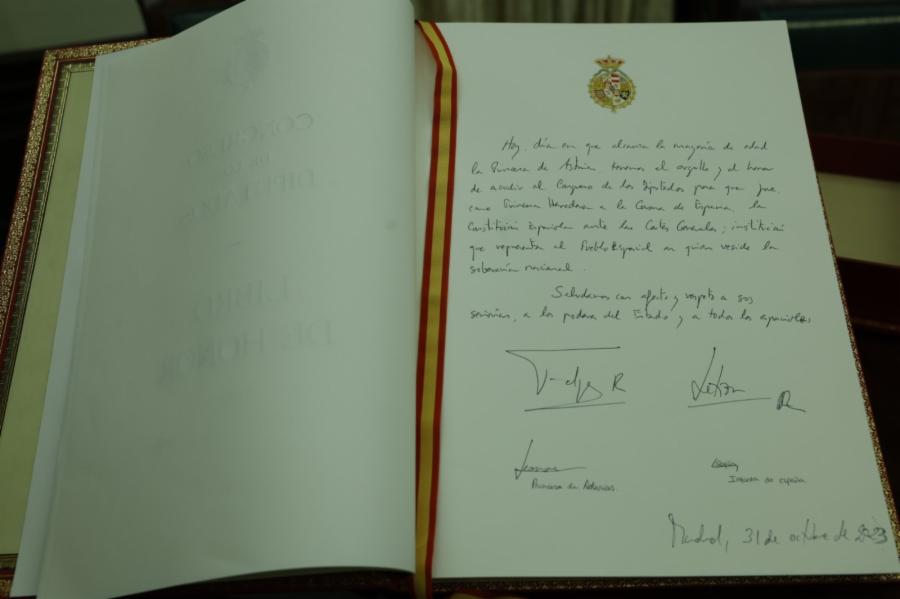 CONGRESO
DE LOS
DIPUTADOS
LIBRO
DE HONOR
Hoy, día en que alcanza la mayoría de edad
la Princesa de Asturias tenemos el orgullo y el honor
de acudir al Congreso de los Diputados para que jure,
como Princesa Heredera a la Corona de España, la
Constitución Española ante las Cortes Generales; institución
que representa al Pueblo Español en quien reside la
soberanía nacional.
Saludamos con afecto y respeto a sus
señorías, a los poderes del Estado y a todos los españoles
Felipe R
Letizia R
Leonor
Princesa de Asturias
Infanta de España
Madrid, 31 de octubre de 2023